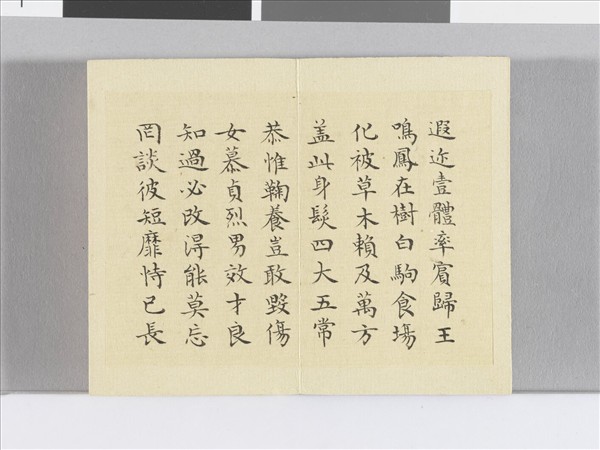 遐迩壹體率賓歸王
鳴鳳在樹白駒食場
化被草木賴及萬方
盖此身髮四大五常
恭惟鞠養豈敢毀傷
女慕貞烈男效才良
知過必改得能莫忘
罔談彼短靡恃己長